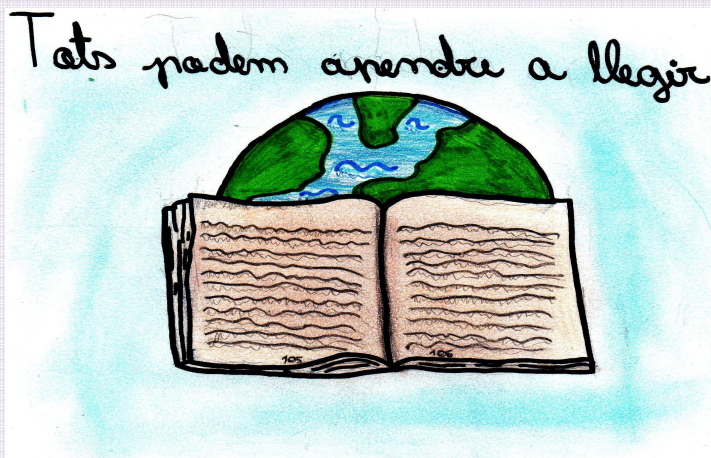 Tots podem apendre a llegir
105 106